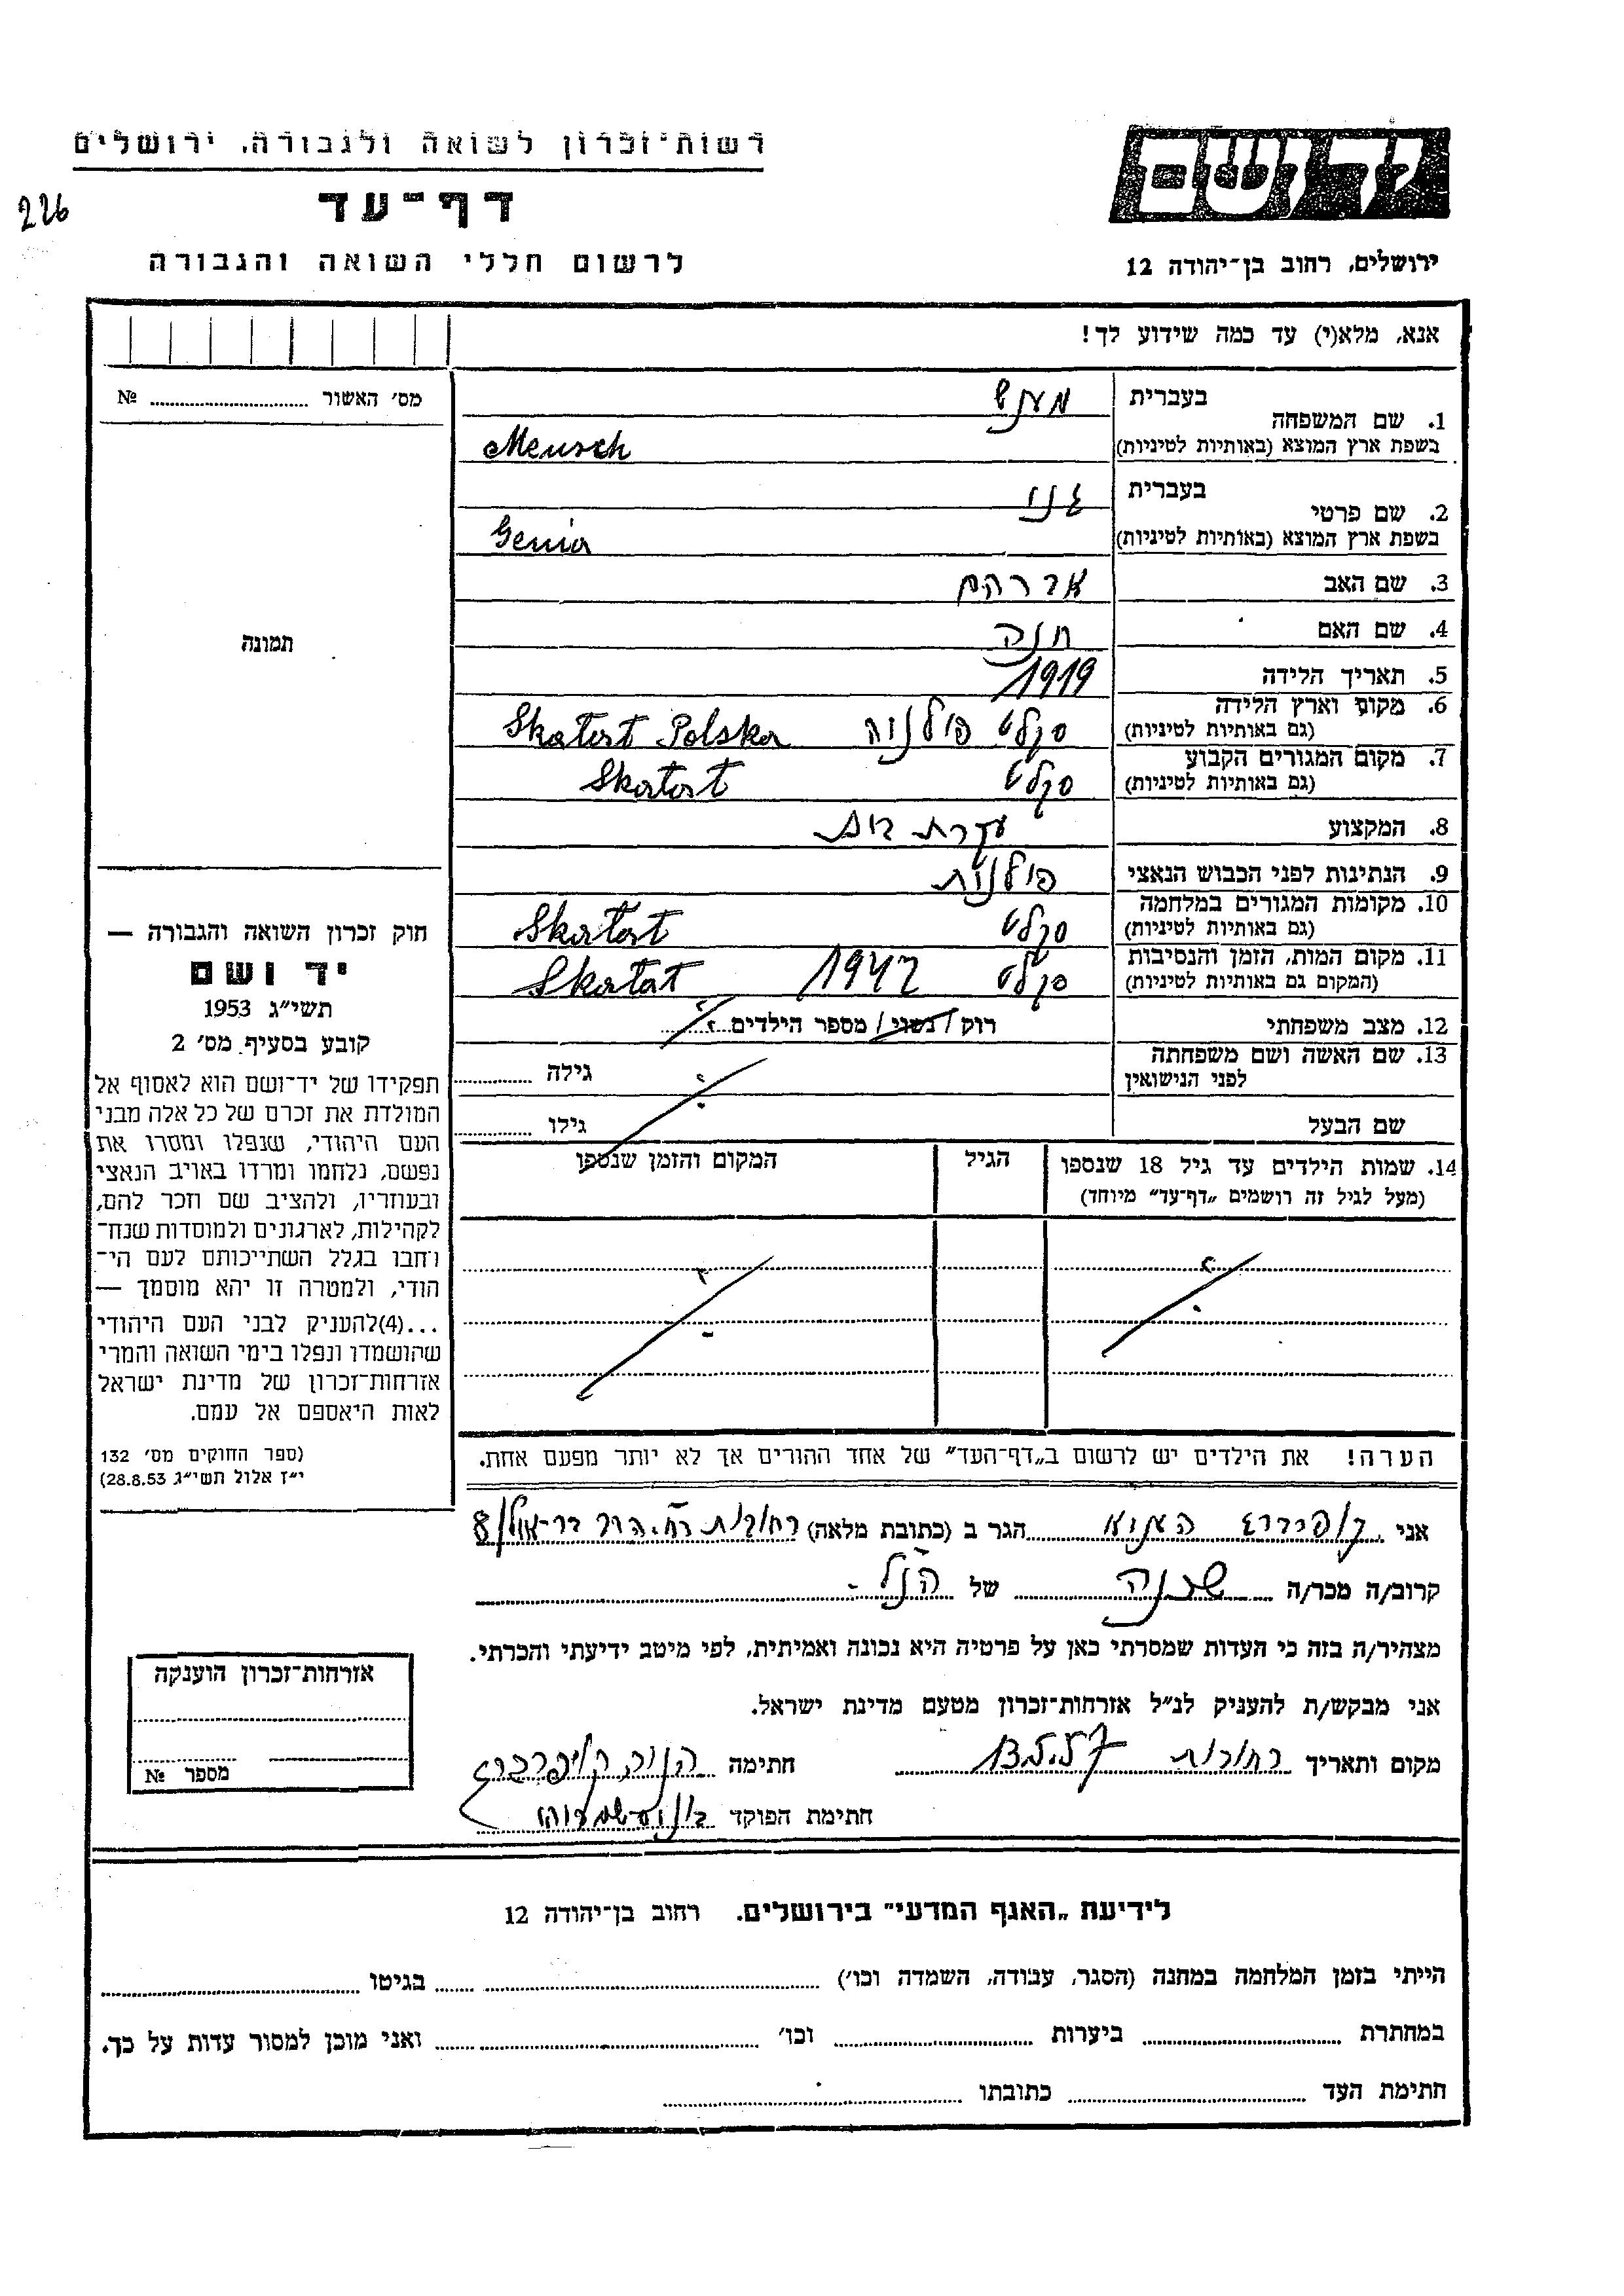 רשות־זכרון לשואה ולגבורה, ירושלים
226
דף־עד
לרשום חללי השואה והגבורה
ירושלים, רחוב בן־יהודה 12
אנא, מלא(י) עד כמה שידוע לך!
1. שם המשפחה בעברית מענש
בשפת ארץ המוצא (באותיות לטיניות) Mensch
2. שם פרטי בעברית
בשפת ארץ המוצא (באותיות לטיניות) Genia
3. שם האב אברהם
4. שם האם חנה
5. תאריך הלידה 1919
6. מקום וארץ הלידה (גם באותיות לטיניות) סקלט פולניה Skatat Polska
7. מקום המגורים הקבוע (גם באותיות לטיניות) סקלט Skatat
8. המקצוע עקרת בית
9. הנתינות לפני הכבוש הנאצי פולנית
10. מקומות המגורים במלחמה (גם באותיות לטיניות) סקלט Skatat
11. מקום המות, הזמן והנסיבות (המקום גם באותיות לטיניות) סקלט 1942 Skatat
12. מצב משפחתי רוק / נשוי / מספר הילדים ?
13. שם האשה ושם משפחתה לפני הנישואין גילה
שם הבעל גילו
?
14. שמות הילדים עד גיל 18 שנספו הגיל המקום והזמן שנספו
(מעל לגיל זה רושמים „דף־עד״ מיוחד)
? ?
הערה! את הילדים יש לרשום ב„דף־העד״ של אחד ההורים אך לא יותר מפעם אחת.
מס׳ האשור №
תמונה
חוק זכרון השואה והגבורה —
יד ושם
תשי״ג 1953
קובע בסעיף מס׳ 2
תפקידו של יד־ושם הוא לאסוף אל
המולדת את זכרם של כל אלה מבני
העם היהודי, שנפלו ומסרו את
נפשם, נלחמו ומרדו באויב הנאצי
ובעוזריו, ולהציב שם וזכר להם,
לקהילות, לארגונים ולמוסדות שנח־
רבו בגלל השתייכותם לעם הי־
הודי, ולמטרה זו יהא מוסמך —
...(4)להעניק לבני העם היהודי
שהושמדו ונפלו בימי השואה והמרי
אזרחות־זכרון של מדינת ישראל
לאות היאספם אל עמם.
(ספר החוקים מס׳ 132
י״ז אלול תשי״ג 28.8.53)
אני הגר ב (כתובת מלאה) רחובות
קרוב/ה מכר/ה שכנה של הנ״ל
מצהיר/ה בזה כי העדות שמסרתי כאן על פרטיה היא נכונה ואמיתית, לפי מיטב ידיעתי והכרתי.
אני מבקש/ת להעניק לנ״ל אזרחות־זכרון מטעם מדינת ישראל.
מקום ותאריך רחובות 13.5.57 חתימה
חתימת הפוקד
אזרחות־זכרון הוענקה
מספר №
לידיעת „האגף המדעי״ בירושלים. רחוב בן־יהודה 12
הייתי בזמן המלחמה במחנה (הסגר, עבודה, השמדה וכו׳) בגיטו
במחתרת ביערות וכו׳ ואני מוכן למסור עדות על כך.
חתימת העד כתובתו